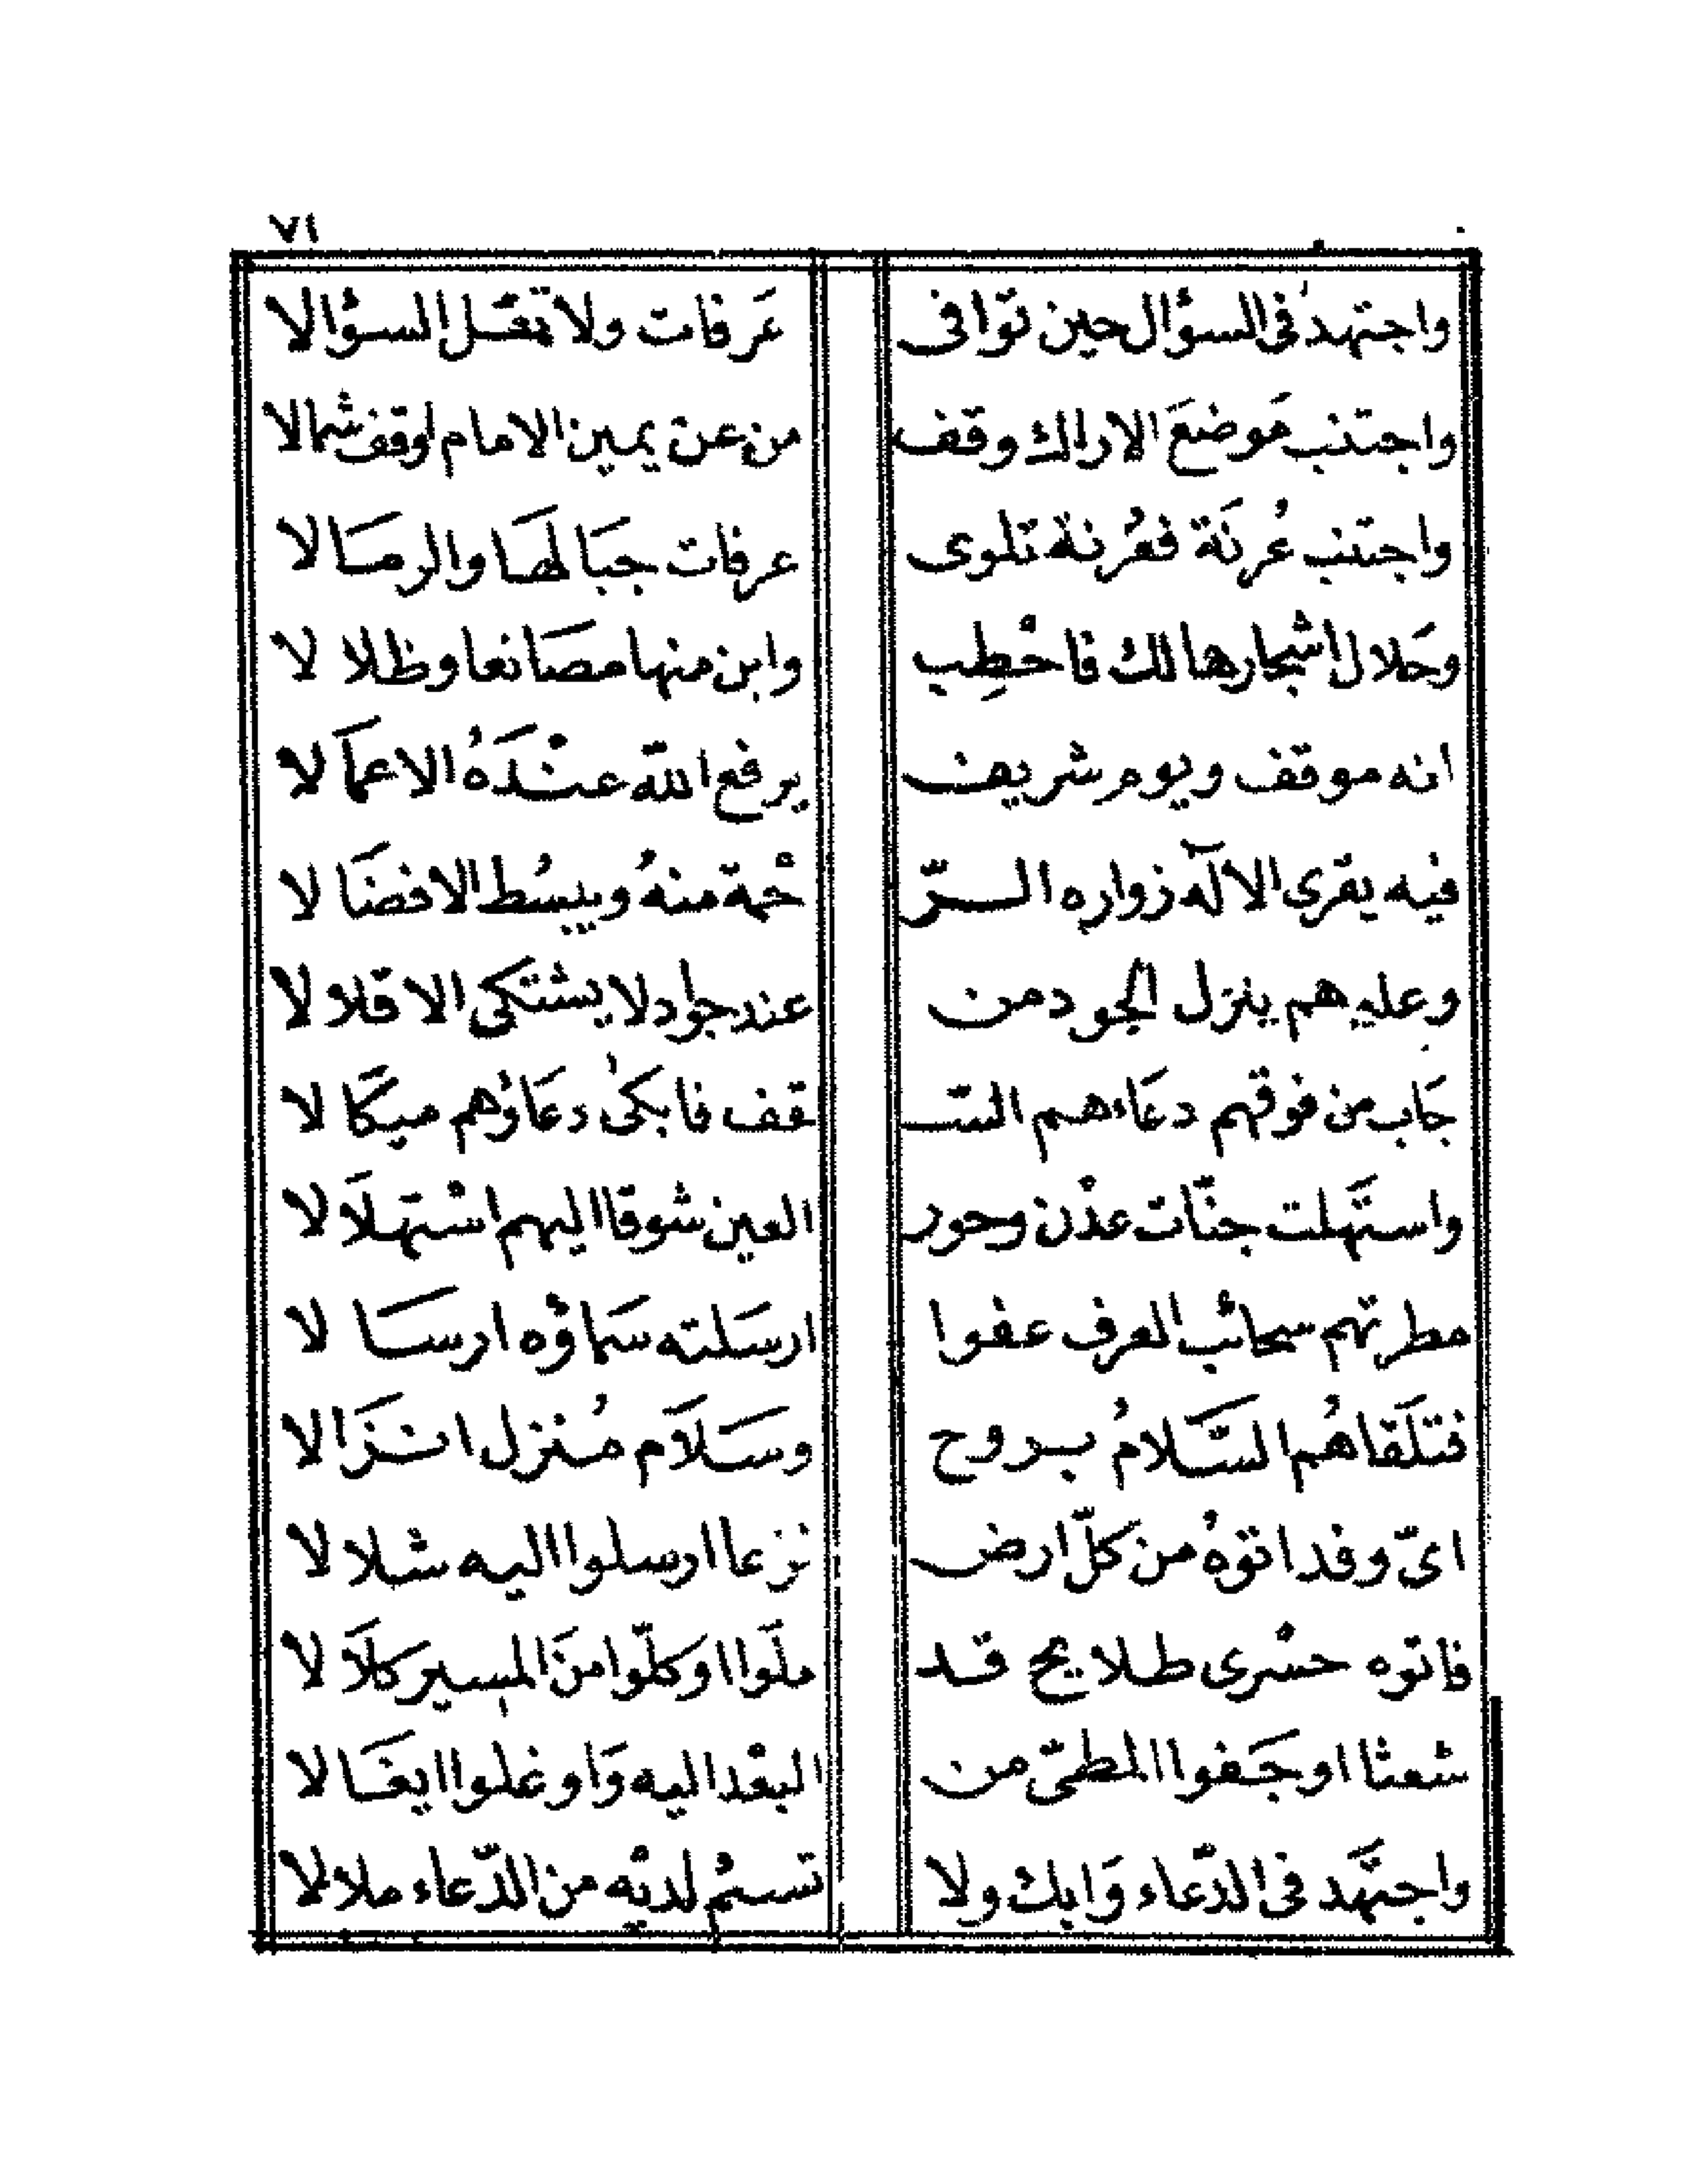 ٧١
واجتهد في السؤال حين توافى عَرفات ولا تمَّل السؤالا
واجتنب مَوضعَ الاراك وقف من عن يمين الامام اوقف شمالا
واجتنب عُرنَة فعُرنة تلوى عرفات جبَالهَا والرمَالا
وحَلال اشجارها لك فاحْطِب وابن منها مصَانعا وظلالا
انه موقف ويوم شريف يرفع الله عنْدَهُ الاعمَالا
فيه يقرى الآلَه زواره الـرّ حْمة منهُ ويبسُط الافضَالا
وعليهم ينزل الجود من عند جواد لا يشتكى الاقلالا
جَاب من فوقهم دعَاءهم السّـ ـقف فابكىٰ دعَاؤهم ميكَالا
واستَهلت جنّات عدْن وحور العين شوقا اليهم اسْتهلَالا
مطرتهم سحائب العرف عفوا ارسَلته سَماؤه ارسَالا
فتلَقاهُم السَّلامُ بروح وسَلَام مُنزل انزَالا
اىّ وفد اتوهُ من كلّ ارض نزعا ارسلوا اليه شلالا
فاتوه حسْرى طلايح قد ملَوا اوكلّوا منَ المسير كلَالا
شعثا اوجَفوا المطىّ من البعْد اليه وَاوغلوا ايغَالا
واجتَهد فى الدّعاء وَابك ولا تسئمْ لديْه من الدّعاء ملالا